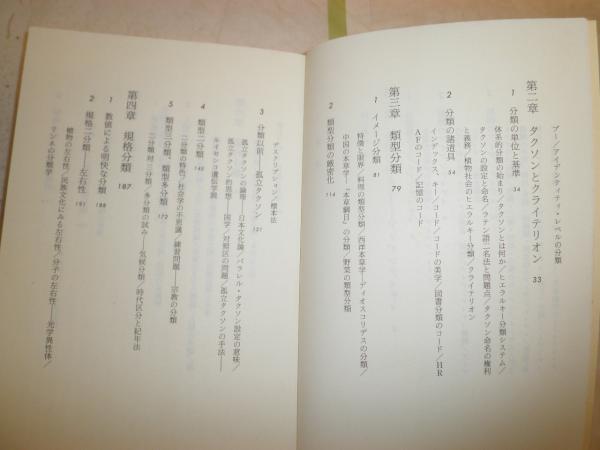 プー/アイデンティティ・レベルの分類
第二章 タクソンとクライテリオン 33
1 分類の単位と基準 34
体系的分類の始まり/タクソンとは何か/ヒエラルキー分類システム/
タクソンの設定と命名/ラテン語二名法と問題点/タクソン命名の権利
と義務/植物社会のヒエラルキー分類/クライテリオン
2 分類の諸道具 54
インデックス、キー/コード/コードの美学/図書分類のコード/HR
AFのコード/記憶のコード
第三章 類型分類 79
1 イメージ分類 81
特徴と限界/料理の類型分類/西洋本草学―ディオスコリデスの分類/
中国の本草学―『本草綱目』の分類/野菜の類型分類
2 類型分類の厳密化 114
デスクリプション/標本法
3 分類以前――孤立タクソン 121
孤立タクソンの論理―日本文化論/パラレル・タクソン設定の意味/
孤立タクソン的思想――国学/対照区の問題/孤立タクソンの手法――
ルイセンコ遺伝学説
4 類型二分類 148
二分類の特性/社会学の不思議/練習問題――宗教の分類
5 類型三分類、類型多分類 172
二分類対三分類/多分類の試み――気候分類/時代区分と紀年法
第四章 規格分類 187
1 数値による明快な分類 188
2 規格二分類――左右性 191
植物の左右性/民族文化にみる左右性/分子の左右性――光学異性体/
リンネの分類学